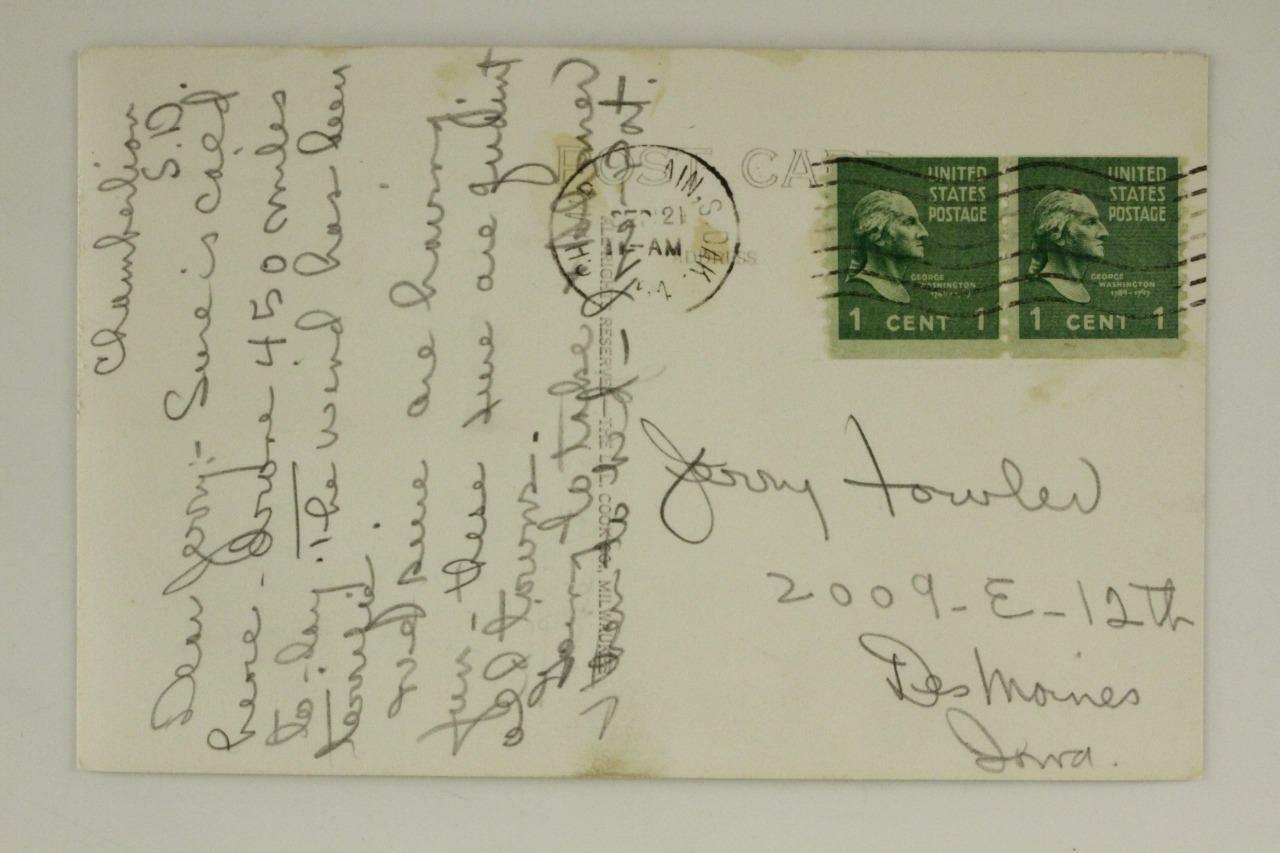 Chamberlian
S. D.
Dear Jerry:- Sure is cold
here - Drove 450 miles
to-day. The wind has been
terrific.
and sure are having
fun - these sure are quaint
old towns.
Going to take
7
POST CARD
ADDRESS
ALL RIGHTS RESERVED — THE L.L. COOK CO., MILWAUKEE
CHAMBERLAIN, S. DAK.
21
AM
UNITED
STATES
POSTAGE
GEORGE
WASHINGTON
1789-1797
1 CENT 1
UNITED
STATES
POSTAGE
GEORGE
WASHINGTON
1789-1797
1 CENT 1
Jerry Fowler
2009-E-12th
Des Moines
Iowa.